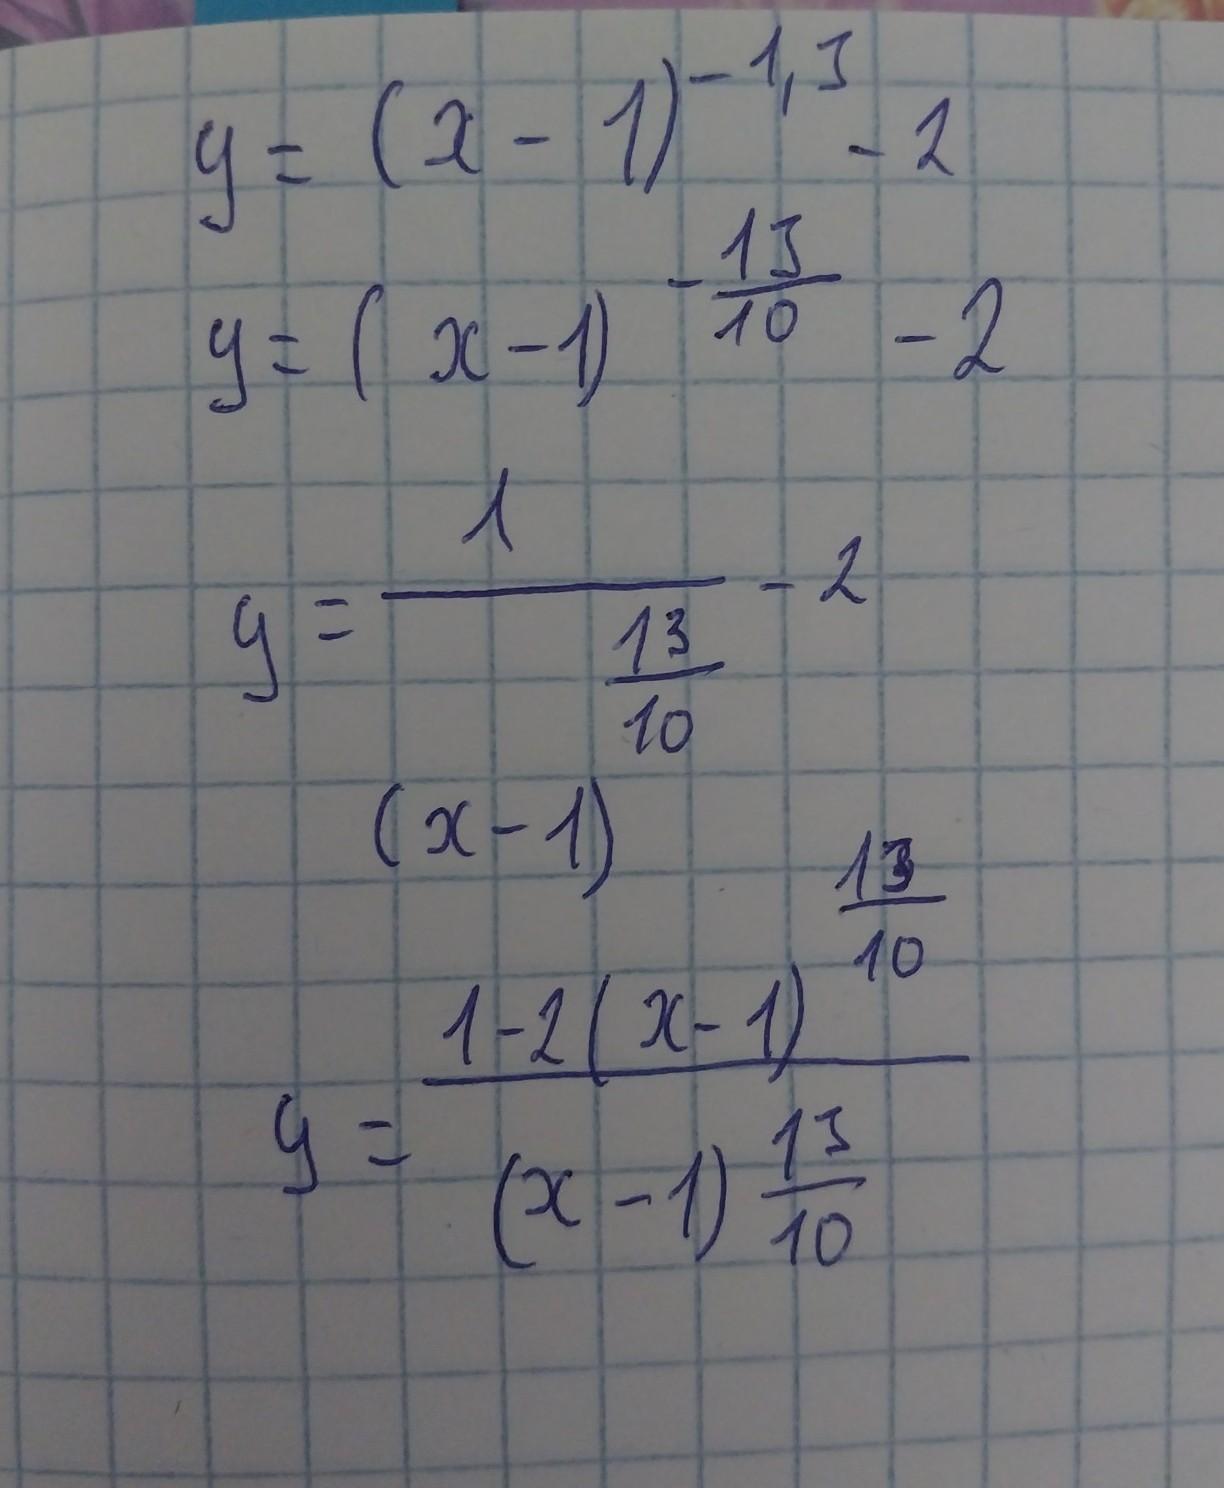 y = (x - 1)^{-1,3} - 2
y = (x - 1)^{-\frac{13}{10}} - 2
y = \frac{1}{(x - 1)^{\frac{13}{10}}} - 2
y = \frac{1 - 2(x - 1)^{\frac{13}{10}}}{(x - 1)^{\frac{13}{10}}}